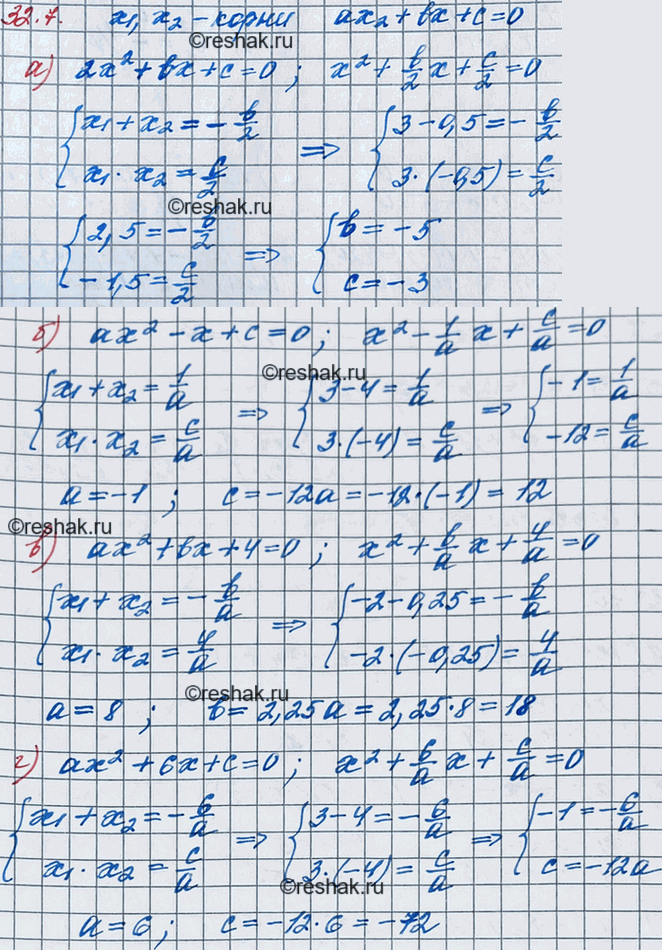 32.7. x₁, x₂ – корни ax₂ + bx + c = 0
©reshak.ru
а) 2x² + bx + c = 0 ; x² + b/2 x + c/2 = 0
{ x₁ + x₂ = - b/2 ⇒ { 3 - 0,5 = - b/2
x₁ · x₂ = c/2 3 · (-0,5) = c/2
©reshak.ru
{ 2,5 = - b/2 ⇒ { b = -5
-1,5 = c/2 c = -3
б) ax² - x + c = 0 ; x² - 1/a x + c/a = 0
©reshak.ru
{ x₁ + x₂ = 1/a ⇒ { 3 - 4 = 1/a ⇒ { -1 = 1/a
x₁ · x₂ = c/a 3 · (-4) = c/a -12 = c/a
a = -1 ; c = -12a = -12 · (-1) = 12
©reshak.ru
в) ax² + bx + 4 = 0 ; x² + b/a x + 4/a = 0
{ x₁ + x₂ = - b/a ⇒ { -2 - 0,25 = - b/a
x₁ · x₂ = 4/a -2 · (-0,25) = 4/a
©reshak.ru
a = 8 ; b = 2,25a = 2,25 · 8 = 18
г) ax² + 6x + c = 0 ; x² + 6/a x + c/a = 0
{ x₁ + x₂ = - 6/a ⇒ { 3 - 4 = - 6/a ⇒ { -1 = - 6/a
x₁ · x₂ = c/a 3 · (-4) = c/a c = -12a
©reshak.ru
a = 6 ; c = -12 · 6 = -72